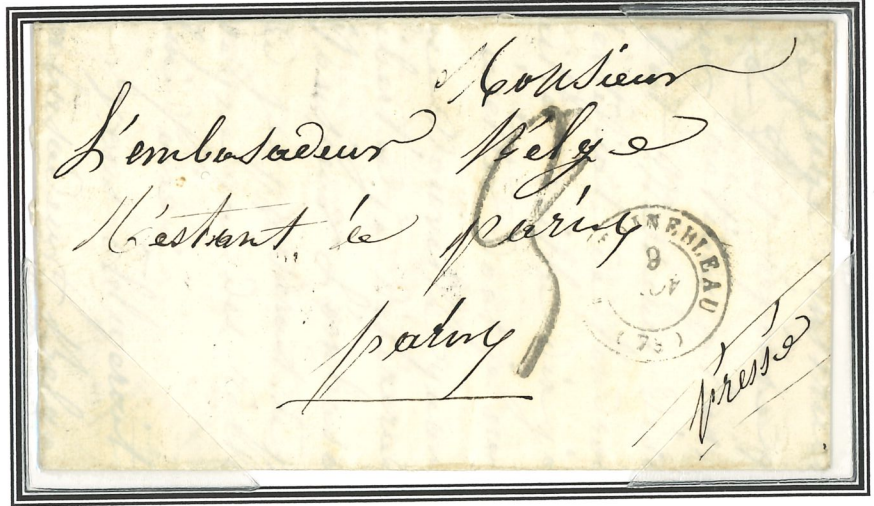 Monsieur
L'embasadeur Bélge
Réstant à paris
paris
FONTAINEBLEAU
9
NOV
(73)
préssé